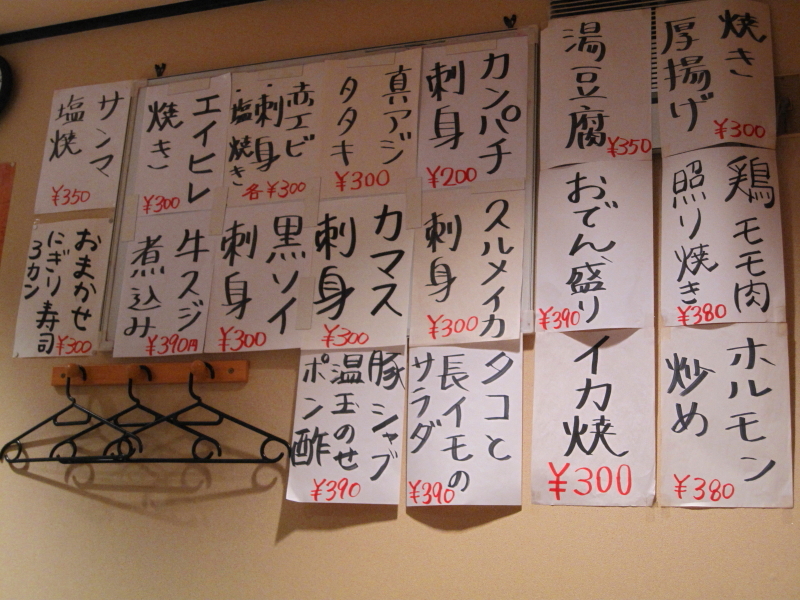 焼き
厚揚げ
¥300
湯豆腐
¥350
カンパチ
刺身
¥200
真アジ
タタキ
¥300
赤エビ
・刺身
・塩焼き
各¥300
エイヒレ
焼き
¥300
サンマ
塩焼
¥350
鶏モモ肉
照り焼き
¥380
おでん盛り
¥390
スルメイカ
刺身
¥300
カマス
刺身
¥300
黒ソイ
刺身
¥300
牛スジ
煮込み
¥390円
おまかせ
にぎり寿司
3カン
¥300
ホルモン
炒め
¥380
イカ焼
¥300
タコと
長イモの
サラダ
¥390
豚シャブ
温玉のせ
ポン酢
¥390